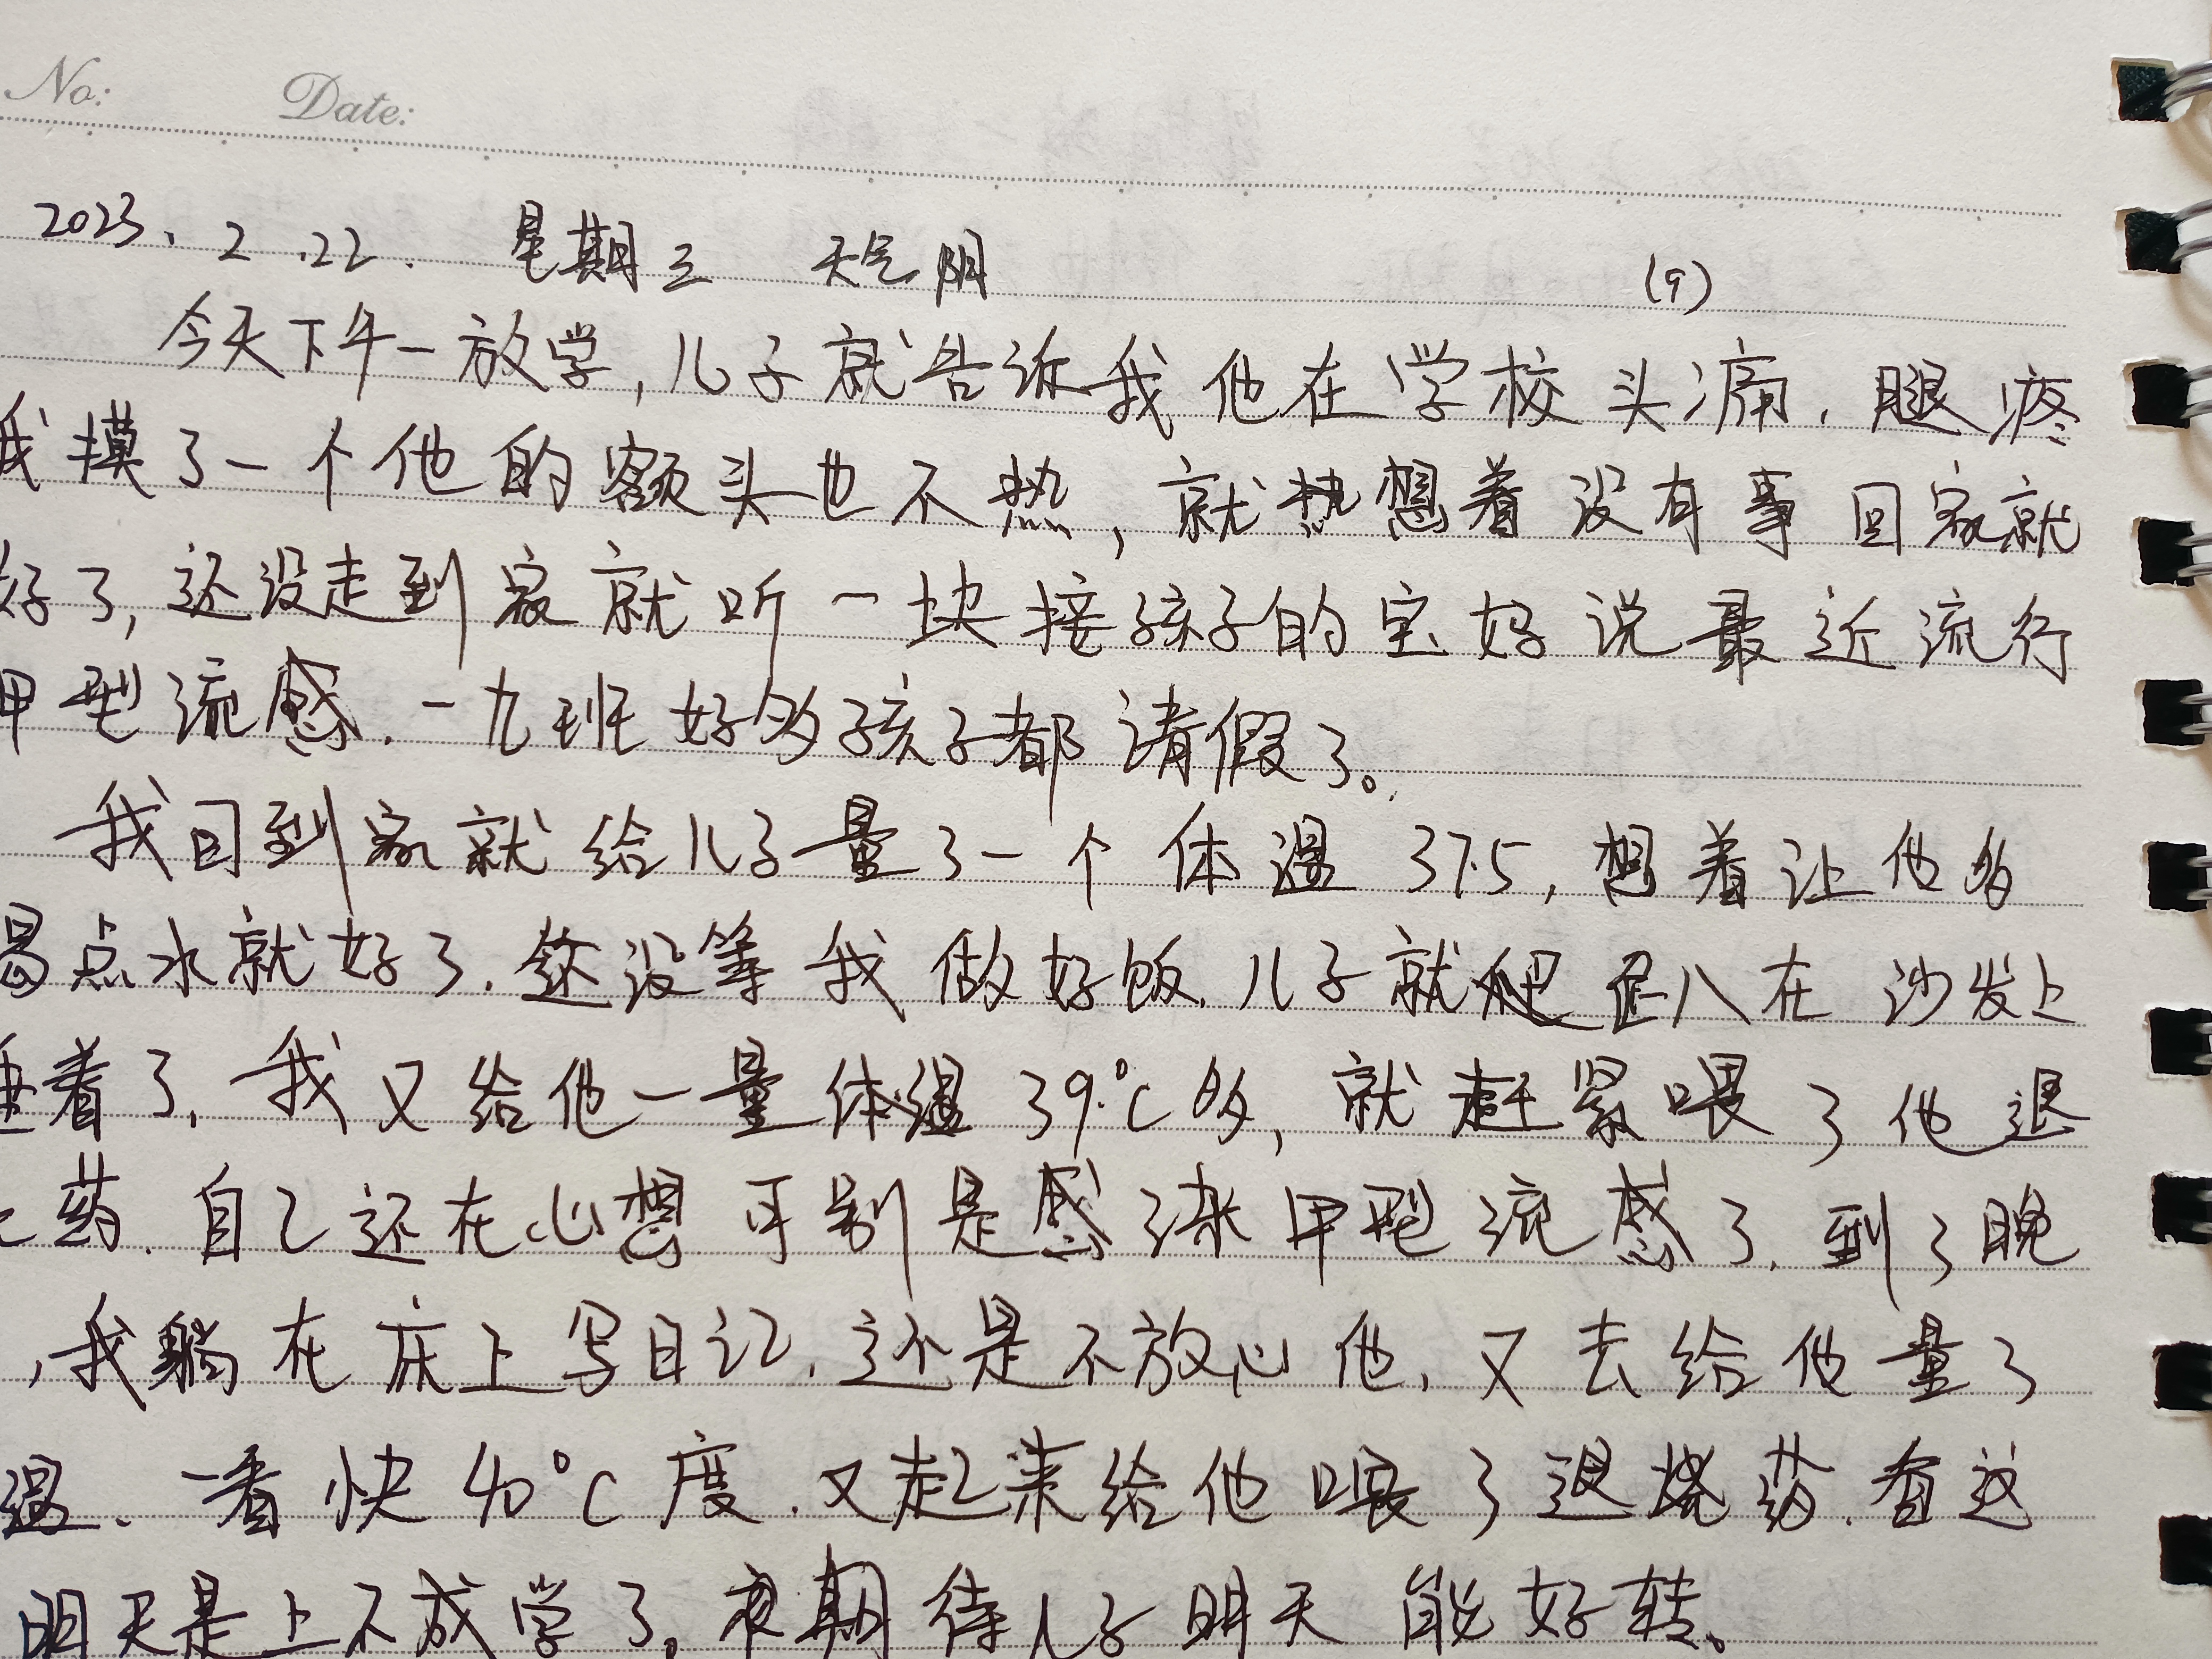 No: Date:
2023. 2 .22. 星期三 天气阴 (9)
今天下午一放学,儿子就告诉我他在学校头痛,腿疼
我摸了一个他的额头也不热,就想着没有事回家就
好了,还没走到家就听一块接孩子的宝妈说最近流行
甲型流感.一九班好多孩子都请假了。
我回到家就给儿子量了一个体温37.5,想着让他多
喝点水就好了.还没等我做好饭.儿子就趴在沙发上
睡着了,我又给他一量体温39℃多,就赶紧喂了他退
药.自己还在心想可别是感染甲型流感了.到了晚
,我躺在床上写日记.还是不放心他,又去给他量了
温、一看快40℃度.又起来给他喂了退烧药.看这
明天是上不成学了。期待儿子明天能好转。